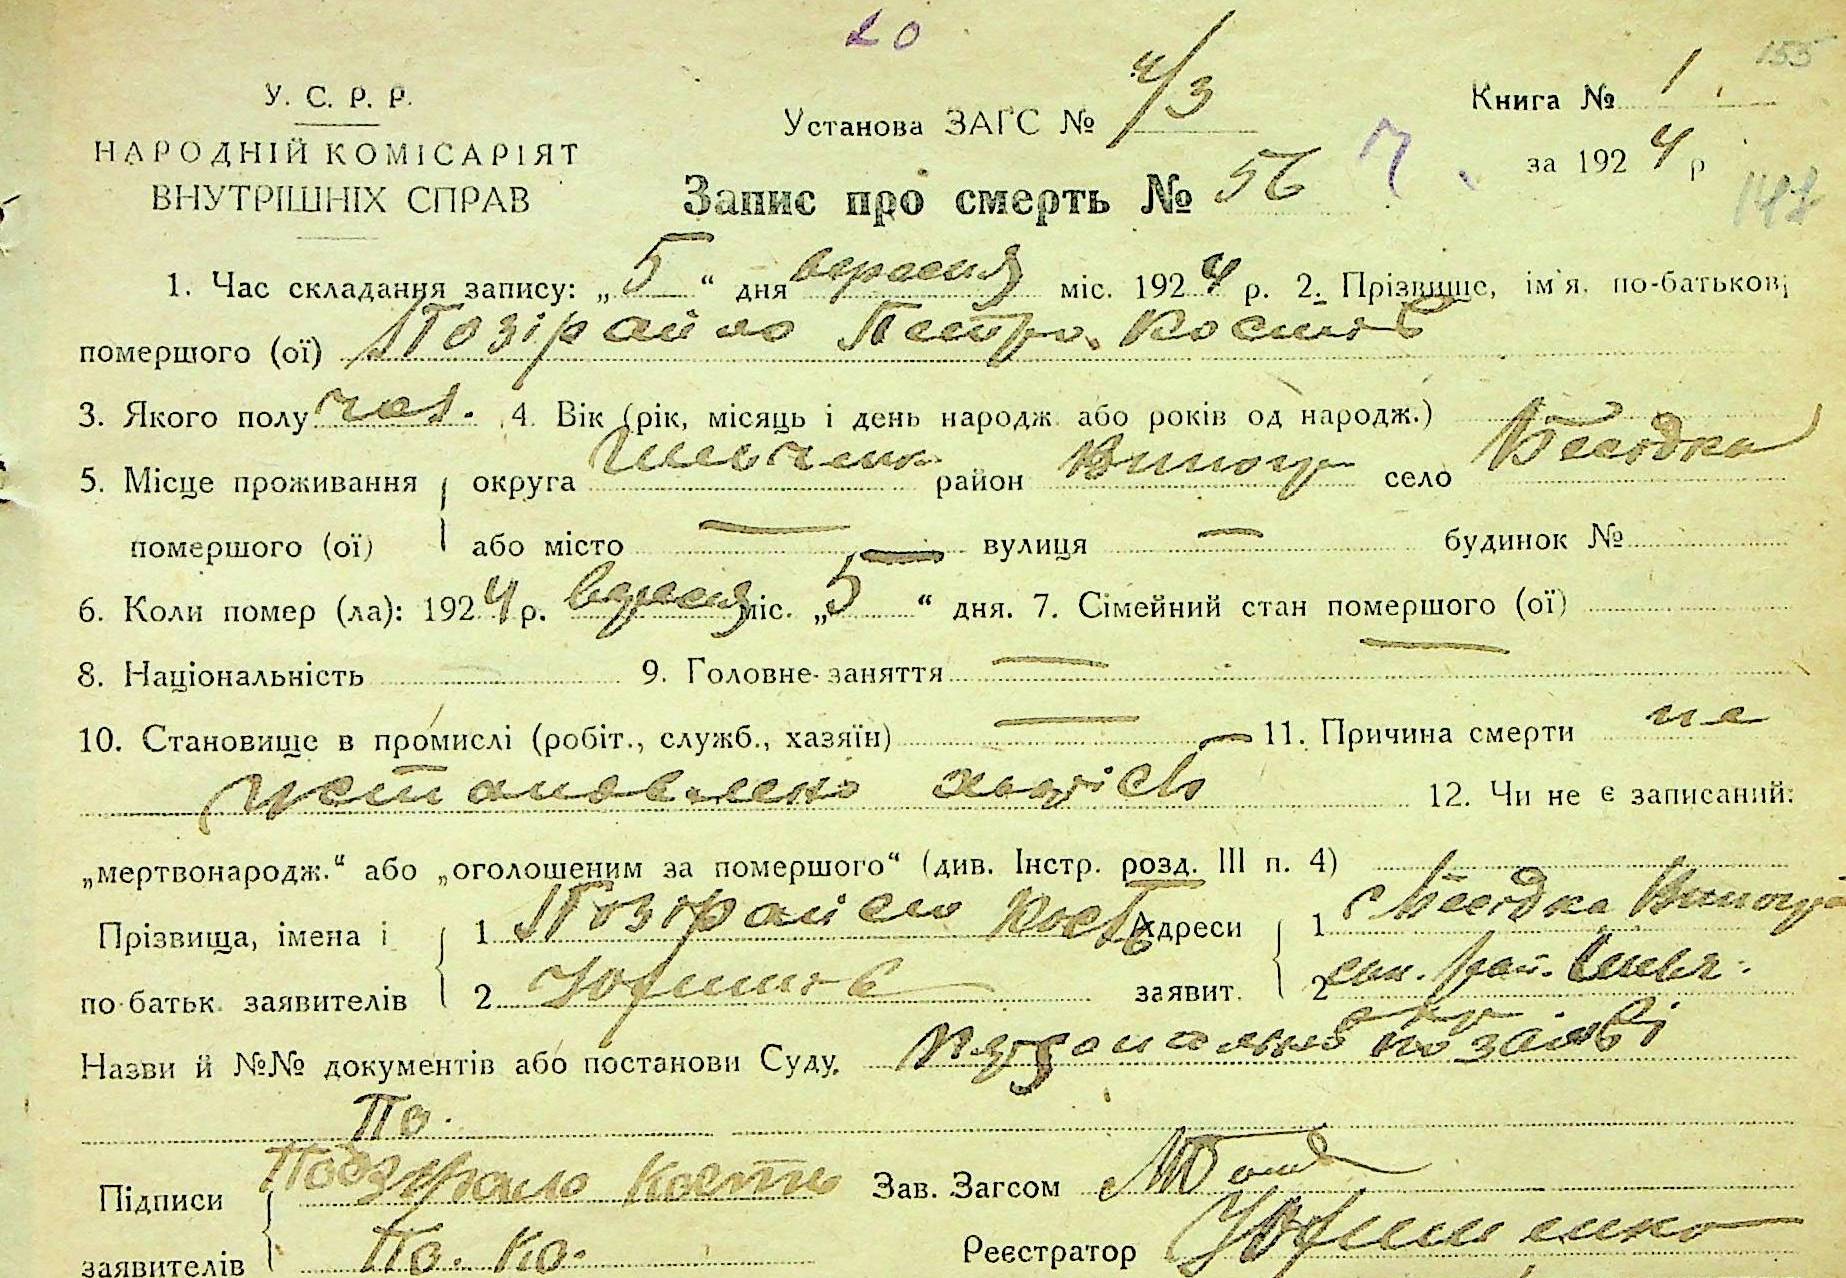 20
155
У. С. Р. Р.
Установа ЗАГС № 4/3
Книга № 1
НАРОДНІЙ КОМІСАРІЯТ
ВНУТРІШНІХ СПРАВ
за 1924 р
147
Запис про смерть № 56
1. Час складання запису: „5“ дня вересня міс. 1924 р. 2. Прізвище, ім'я, по-батькові
помершого (ої) Позірайло Петро Костів
3. Якого полу чол. 4. Вік (рік, місяць і день народж. або років од народж.)
5. Місце проживання округа Шевченк район Виногр село Беседка
помершого (ої) або місто — вулиця — будинок №
6. Коли помер (ла): 1924 р. вересня міс. „5“ дня. 7. Сімейний стан помершого (ої) —
8. Національність 9. Головне заняття —
10. Становище в промислі (робіт., служб., хазяїн) — 11. Причина смерти не
установлено 12. Чи не є записаний:
„мертвонародж.“ або „оголошеним за помершого“ (див. Інстр. розд. III п. 4)
Прізвища, імена і 1 Позірайло Кость Адреси 1 с Беседка
по-батьк. заявителів 2 заявит. 2 рай. Шевч.
Назви й №№ документів або постанови Суду. по заяві
По.
Підписи Кость Зав. Загсом
заявителів По. Ко. Реєстратор